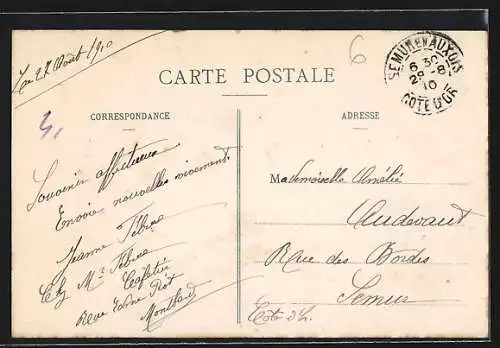 Le 27 Août 1910
6
CARTE POSTALE
SEMUR-EN-AUXOIS
6 30
28 -8
10
COTE D'OR
CORRESPONDANCE
ADRESSE
Souvenir affectueux
Envoie nouvelles vivement
Jeanne Febvre
Chez Mr Febvre
Cafetier
Rue Edme Piot
Montbard
Mademoiselle Amélie
Audevaut
Rue des Bordes
Semur
Côte d'Or